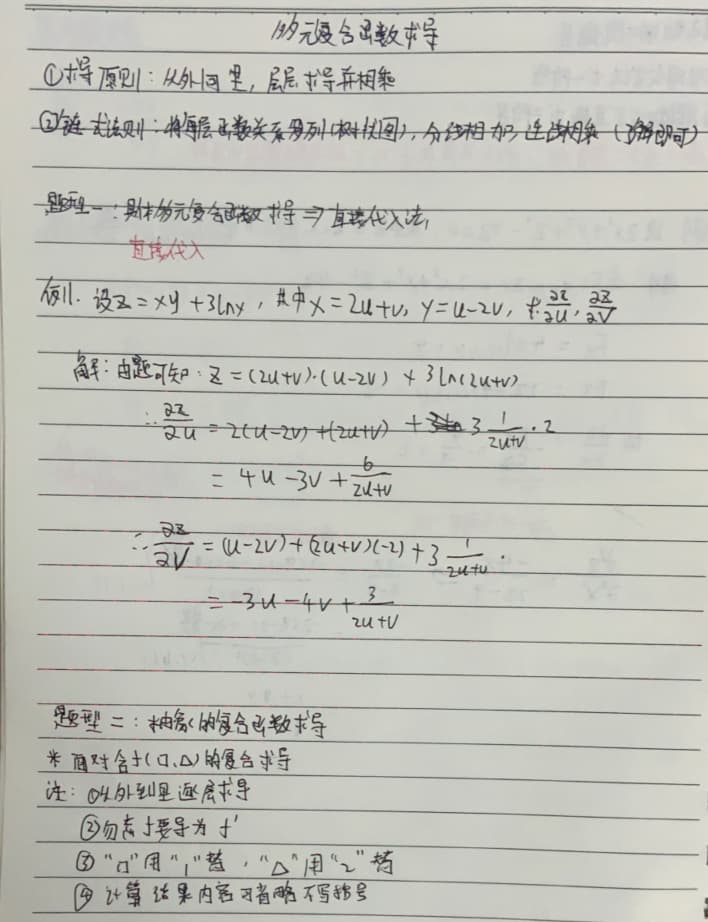 多元复合函数求导
①求导原则：从外向里，层层求导并相乘
②链式法则：将每层函数关系罗列(树状图)，分线相加，连线相乘（了解即可）
题型一：具体多元复合函数求导⇒直接代入法
直接代入
例1. 设z=xy+3lnx，其中x=2u+v, y=u-2v, 求∂z/∂u, ∂z/∂v
解：由题可知：z=(2u+v)·(u-2v)+3ln(2u+v)
∴ ∂z/∂u = 2(u-2v)+(2u+v)+3 1/(2u+v)·2
= 4u-3v+6/(2u+v)
∴ ∂z/∂v = (u-2v)+(2u+v)(-2)+3 1/(2u+v)·
= -3u-4v+3/(2u+v)
题型二：抽象的复合函数求导
* 面对含f(□,△)的复合求导
注：①从外到里逐层求导
②勿忘f要导为f′
③“□”用“1”替，“△”用“2”替
④计算结果内容可省略不写括号